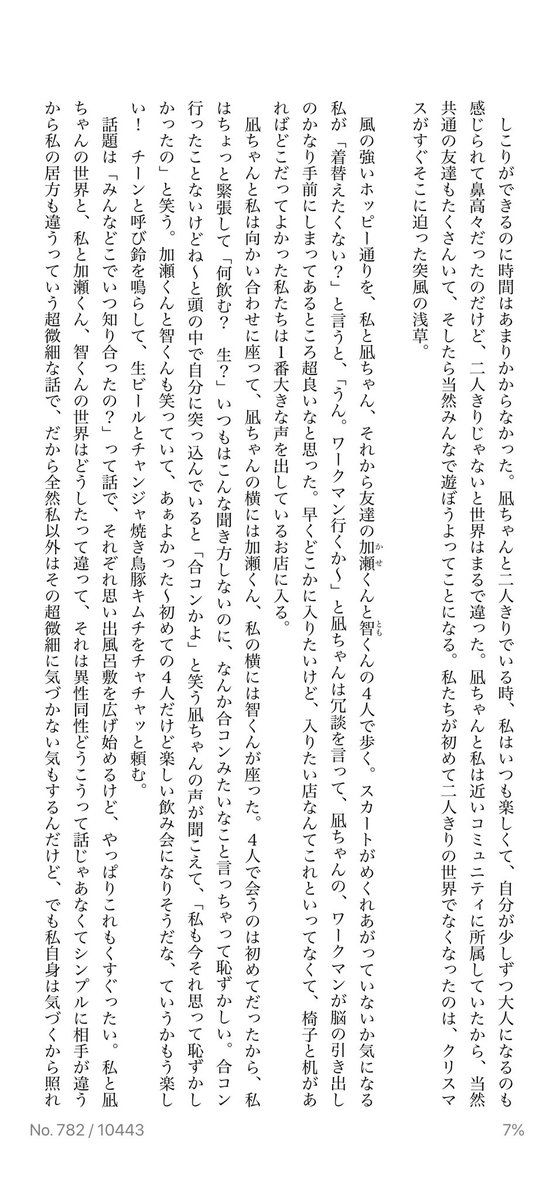 しこりができるのに時間はあまりかからなかった。凪ちゃんと二人きりでいる時、私はいつも楽しくて、自分が少しずつ大人になるのも
感じられて鼻高々だったのだけど、二人きりじゃないと世界はまるで違った。凪ちゃんと私は近いコミュニティに所属していたから、当然
共通の友達もたくさんいて、そしたら当然みんなで遊ぼうよってことになる。私たちが初めて二人きりの世界でなくなったのは、クリスマ
スがすぐそこに迫った突風の浅草。
風の強いホッピー通りを、私と凪ちゃん、それから友達の加瀬くんと智くんの4人で歩く。スカートがめくれあがっていないか気になる
かせ
とも
私が「着替えたくない？」と言うと、「うん。ワークマン行くか〜」と凪ちゃんは冗談を言って、凪ちゃんの、ワークマンが脳の引き出し
のかなり手前にしまってあるところ超良いなと思った。早くどこかに入りたいけど、入りたい店なんてこれといってなくて、椅子と机があ
ればどこだってよかった私たちは1番大きな声を出しているお店に入る。
凪ちゃんと私は向かい合わせに座って、凪ちゃんの横には加瀬くん、私の横には智くんが座った。4人で会うのは初めてだったから、私
はちょっと緊張して「何飲む？　生？」いつもはこんな聞き方しないのに、なんか合コンみたいなこと言っちゃって恥ずかしい。合コン
行ったことないけどね〜と頭の中で自分に突っ込んでいると「合コンかよ」と笑う凪ちゃんの声が聞こえて、「私も今それ思って恥ずかし
かったの」と笑う。加瀬くんと智くんも笑っていて、あぁよかった〜初めての4人だけど楽しい飲み会になりそうだな、ていうかもう楽し
い！　チーンと呼び鈴を鳴らして、生ビールとチャンジャ焼き鳥豚キムチをチャチャッと頼む。
話題は「みんなどこでいつ知り合ったの？」って話で、それぞれ思い出風呂敷を広げ始めるけど、やっぱりこれもくすぐったい。私と凪
ちゃんの世界と、私と加瀬くん、智くんの世界はどうしたって違って、それは異性同性どうこうって話じゃあなくてシンプルに相手が違う
から私の居方も違うっていう超微細な話で、だから全然私以外はその超微細に気づかない気もするんだけど、でも私自身は気づくから照れ
No. 782 / 10443
7%